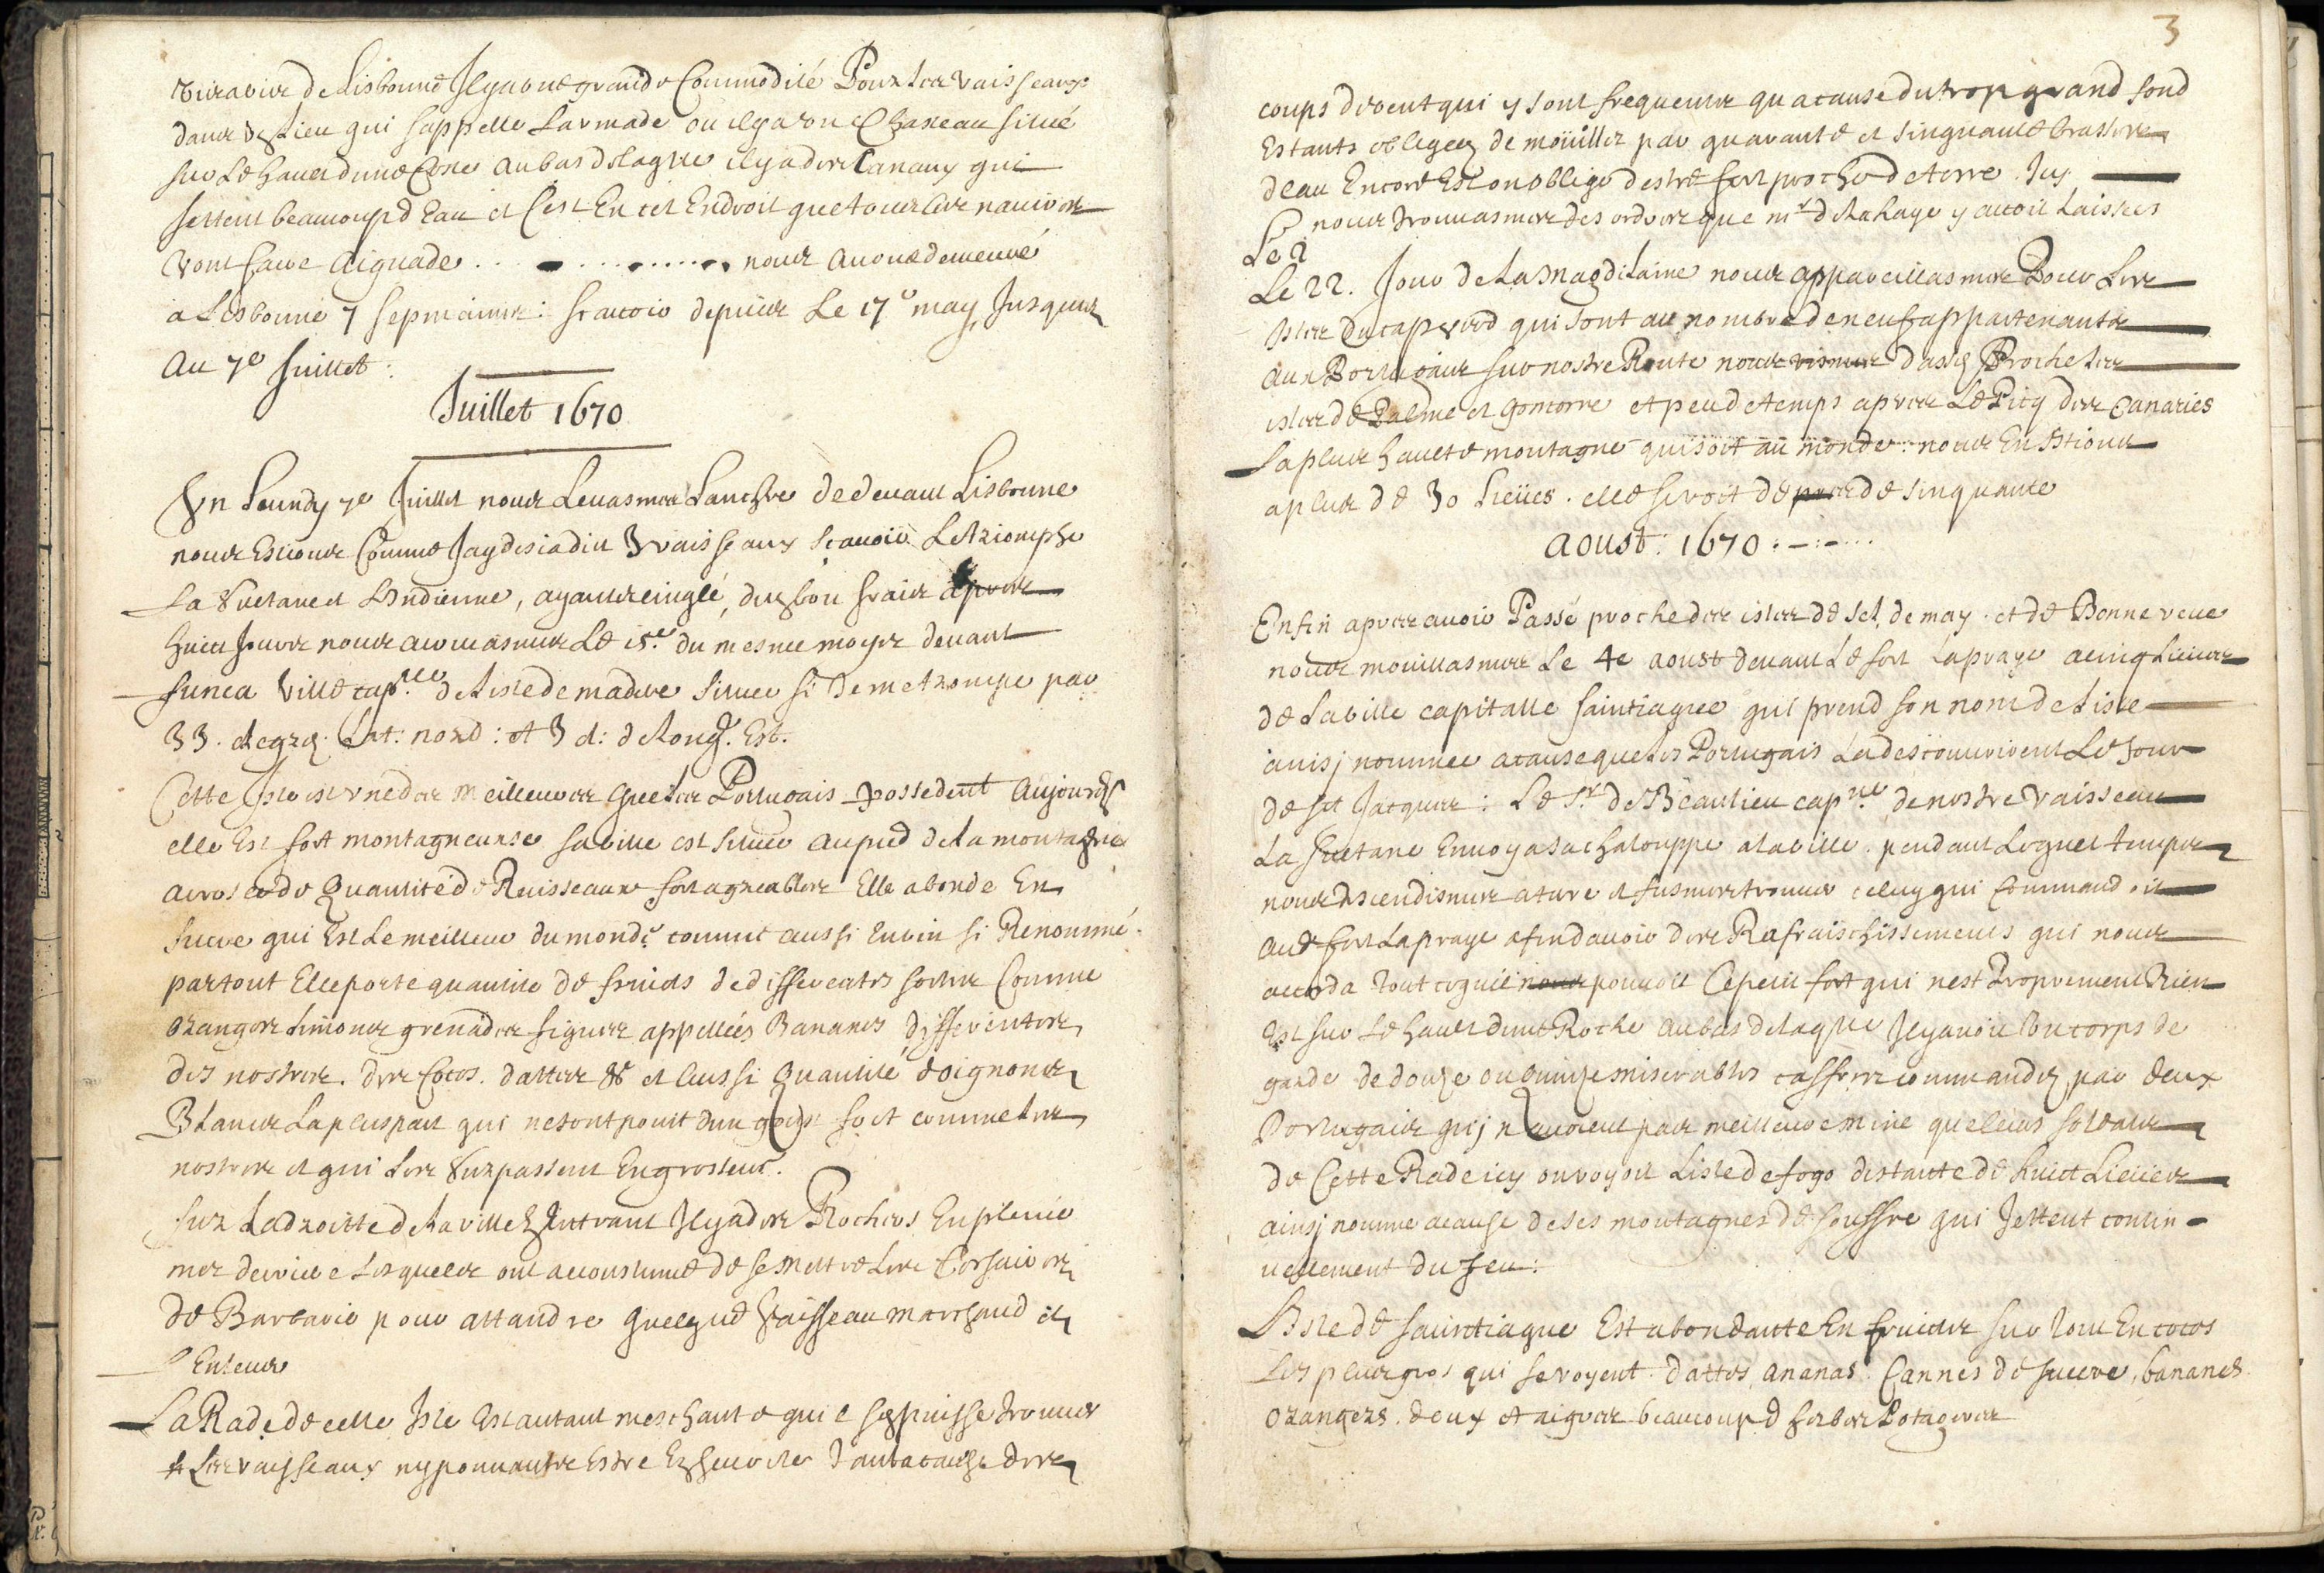 riviere de Lisbonne Jlya une grande Commodité Pour Les vaisseaux
dans un Lieu qui sappelle Larmade ou ilya un Chasteau situé
sur Le haut dune Coste au bas delaqlle ilya des Canaux qui
Jettent beaucoup d Eau et Cest En cet Endroit que tous Les navires
vont faire aiguade . . . . . . . . . . . . nous auons demeuré
à Lisbonne 7 sepmaines : scauoir depuis Le 17e may Jusques
Au 7e Juillet :
Juillet 1670
Vn Leundy 7e Juillet nous Leuasmes Lanchre de deuant Lisbonne
nous Estions Comme Jay desia dit 3 vaisseaux scauoir Le Triomphe
La Sultane et Lindienne, ayants cinglé, dun bon frais apres
huict Jours nous arriuasmes Le 15.e du mesme moys deuant
funca ville cap.lle de Lisle de madere situee par
33. degrez. Lat: nord : et 3 d: de Long. Est.
Cette Isle est vne des meilleures que Les Portugais possedent aujourdh
elle Est fort montagneuse sa ville est situee au pied de La montagne
arosee de Quantité de Ruisseaux fort agreables Elle abonde En
sucre qui Est Le meilleur du monde comme aussi En vin si Renommé
partout Elle porte quantite de fruicts de differents sortes Comme
oranges Limons grenades figues appellées Bananes differentes
des nostres. des Cocos. dattes &c et aussi Quantité d oignons
Blancs La pluspart qui ne sont point dun goust fort comme Les
nostres et qui Les Surpassent En grosseur.
sur La droitte de La ville En Entrant Jlya des Rochers En pleine
mer derriere Lesquels ont accoustumé de se mettre Les Corsaires
de Barbarie pour attandre quelque vaisseau marchand et
L Enleuer
La Rade de cette Isle Est autant meschante quil se puisse trouuer
Les vaisseaux ny pouuants Estre En seurete tant a cause des
3
coups de vent qui y sont frequents qu a cause du trop grand fond
Estants obligez de moüiller par quarante et sinquante brasses
deau Encore Est on obligé destre fort proche de terre. Icy
nous trouuasmes des ordres que mr de La haye y auoit Laissees
Le 2
Le 22. Jour de La Magdelaine nous appareillasmes Pour Les
Isles du cap verd qui sont au nombre de neuf appartenants
aux Portugais sur nostre Route nous vismes dassez Proche Les
isles de Palme et Gomorre et peu de temps apres Le Picq des Canaries
La plus haulte montagne qui soit au monde : nous En Estions
a plus de 30 Lieües. elle se voit de pres de sinquante
aoust : 1670 : - : - . . .
Enfin apres auoir Passé proche des isles de sel, de may . et de Bonneveue
nous mouillasmes Le 4e aoust deuant Le fort Lapraye a cinq Lieues
de La ville capitalle saintiague qui prend son nom de Lisle
ainsj nommee a cause que Les Portugais La descouurirent Le Jour
de sct Jacques : Le Sr de Beaulieu cap.ne de nostre vaisseau
La Sultane Enuoya sa chalouppe a La ville. pendant Lequel temps
nous descendismes a terre et fusmes trouuer celuy qui Commandoit
au fort Lapraye afin dauoir des Rafraischissements qui nous
accorda Tout ce quil pouuoit Ce petit fort qui nest Proprement Rien
Est sur Le haut dune Roche au bas delaqlle Jlyauoit Un corps de
garde de douze ou quinze miserables caffres commandez par deux
Portugais quj nauoient pas meilleure mine que leurs soldats
de Cette Rade icy on voyoit Lisle de fogo distante de huict Lieues
ainsj nomme a cause de ses montagnes de souffre qui Jettent contin
uellement du feu :
LIsle de saintiague Est abondante En fruicts sur tout En cocos
Les plus gros qui se voyent. dattes, ananas. Cannes de sucere, bananes
orangers. doux et aigres beaucoup d herbes Potageres